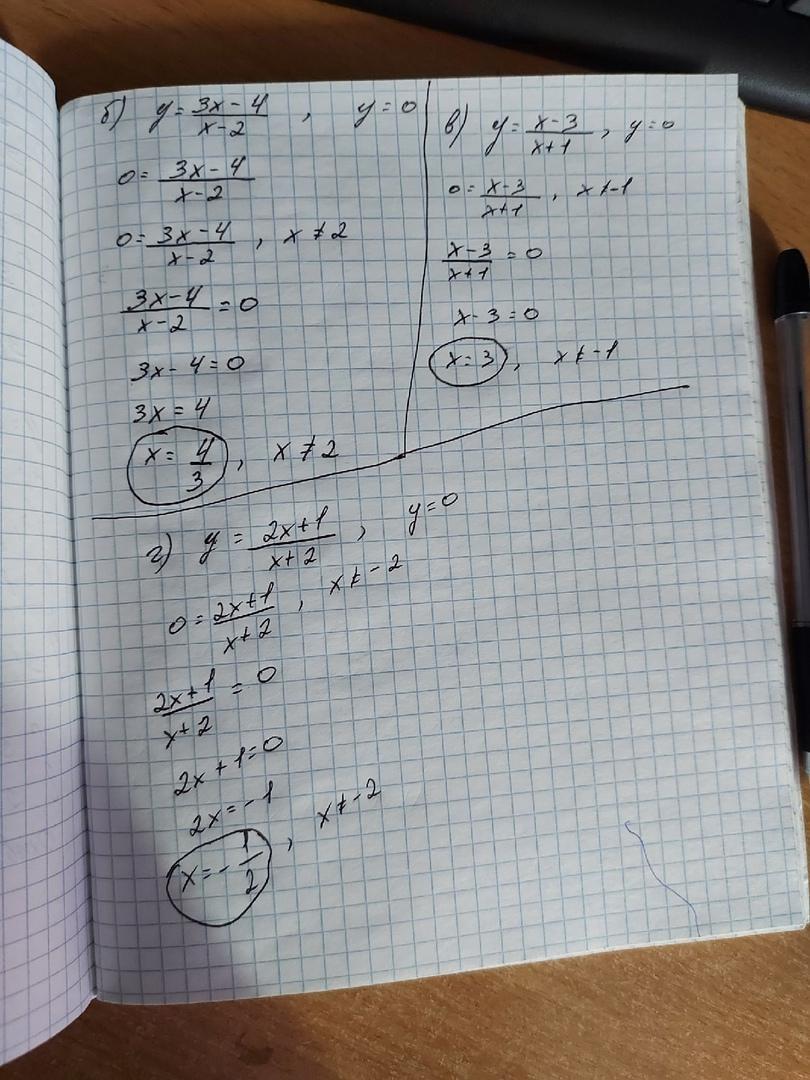 б) y = (3x - 4)/(x - 2) , y = 0
0 = (3x - 4)/(x - 2)
0 = (3x - 4)/(x - 2) , x ≠ 2
(3x - 4)/(x - 2) = 0
3x - 4 = 0
3x = 4
x = 4/3 , x ≠ 2
в) y = (x - 3)/(x + 1) , y = 0
0 = (x - 3)/(x + 1) , x ≠ -1
(x - 3)/(x + 1) = 0
x - 3 = 0
x = 3 , x ≠ -1
г) y = (2x + 1)/(x + 2) , y = 0
0 = (2x + 1)/(x + 2) , x ≠ -2
(2x + 1)/(x + 2) = 0
2x + 1 = 0
2x = -1
x = -1/2 , x ≠ -2